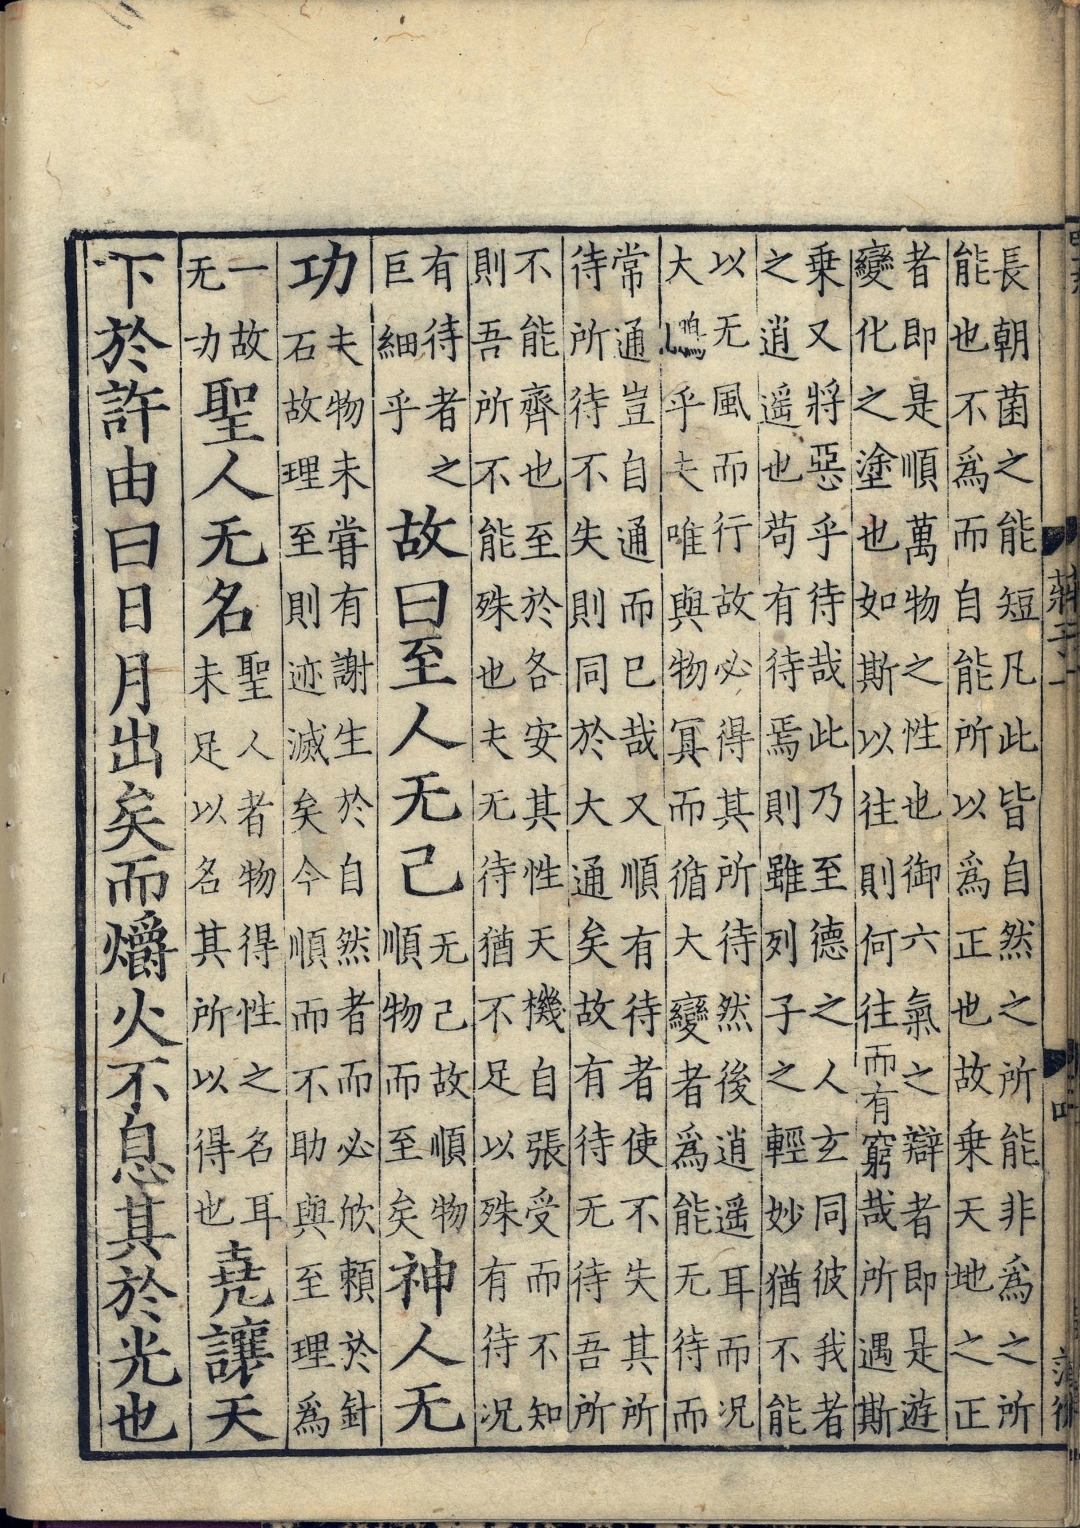 莊子一
長朝菌之能短凡此皆自然之所能非爲之所
能也不爲而自能所以爲正也故乗天地之正
者即是順萬物之性也御六氣之辯者即是遊
變化之塗也如斯以往則何往而有窮哉所遇斯
乗又將惡乎待哉此乃至德之人玄同彼我者
之逍遥也苟有待焉則雖列子之輕妙猶不能
以无風而行故必得其所待然後逍遥耳而况
大鵬乎夫唯與物冥而循大變者爲能无待而
常通豈自通而巳哉又順有待者使不失其所
待所待不失則同於大通矣故有待无待吾所
不能齊也至於各安其性天機自張受而不知
則吾所不能殊也夫无待猶不足以殊有待况
有待者之
巨細乎
故曰至人无己
无己故順物
順物而至矣
神人无
功
夫物未嘗有謝生於自然者而必欣賴於針
石故理至則迹滅矣今順而不助與至理爲
一故
无功
聖人无名
聖人者物得性之名耳
未足以名其所以得也
堯讓天
下於許由曰日月出矣而爝火不息其於光也